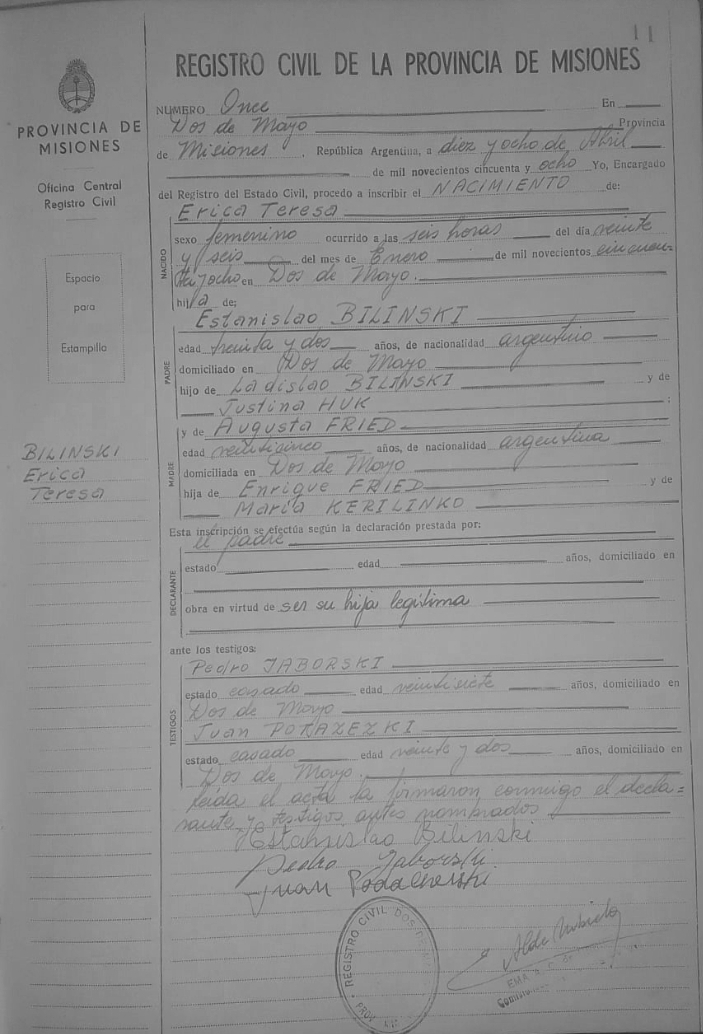 11
PROVINCIA DE
MISIONES
Oficina Central
Registro Civil
Espacio
para
Estampilla
BILINSKI
Erica
Teresa
REGISTRO CIVIL DE LA PROVINCIA DE MISIONES
NUMERO Once En
Dos de Mayo Provincia
de Misiones, República Argentina, a diez y ocho de Abril
de mil novecientos cincuenta y ocho Yo, Encargado
del Registro del Estado Civil, procedo a inscribir el NACIMIENTO de:
Erica Teresa
NACIDO
sexo femenino ocurrido a las seis horas del día veinte
y seis del mes de Enero de mil novecientos cincuen-
ta y ocho en Dos de Mayo.
hija de:
Estanislao BILINSKI
PADRE
edad treinta y dos años, de nacionalidad argentino
domiciliado en Dos de Mayo
hijo de Ladislao BILINSKI y de
Justina HUK ;
y de Augusta FRIED
MADRE
edad veinticinco años, de nacionalidad argentina
domiciliada en Dos de Mayo
hija de Enrique FRIED y de
María KERILINKO
Esta inscripción se efectúa según la declaración prestada por:
el padre
DECLARANTE
estado edad años, domiciliado en
obra en virtud de ser su hija legítima
ante los testigos:
TESTIGOS
Pedro JABORSKI
estado casado edad veintisiete años, domiciliado en
Dos de Mayo
Juan PORAZEZKI
estado casado edad veinte y dos años, domiciliado en
Dos de Mayo.
leída el acta la firmaron conmigo el decla=
rante y testigos antes nombrados
Estanislao Bilinski
Pedro Jaborski
Juan
REGISTRO CIVIL DOS DE